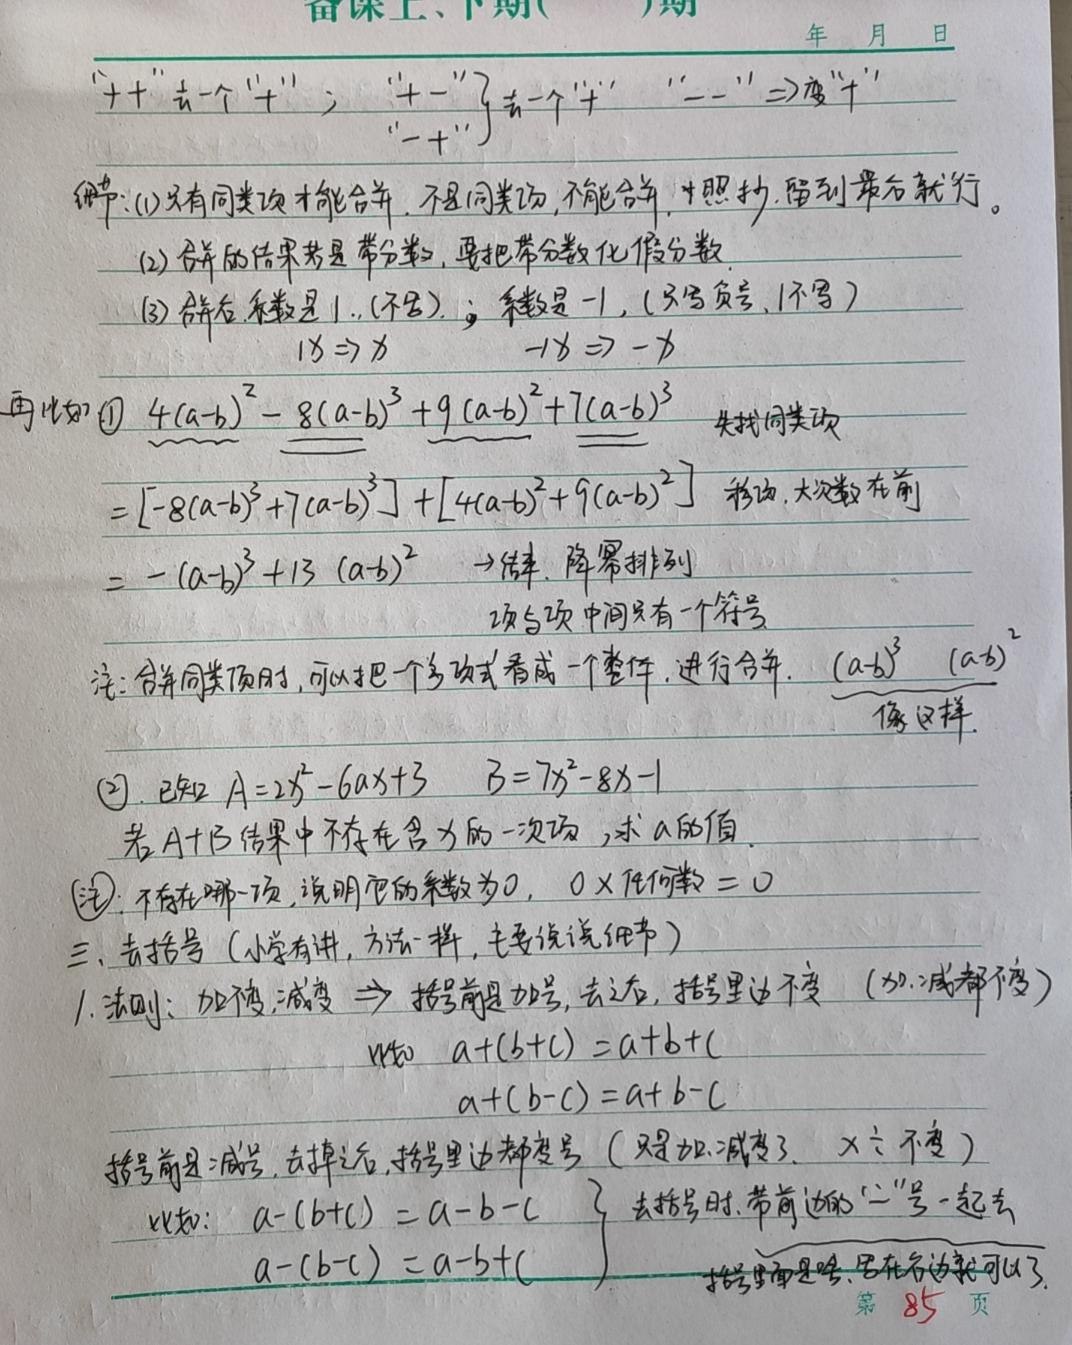 备课上、下期( )期
年 月 日
"++"去一个"+"; "+-" "-+"}去一个"+" "--"⇒变"+"
细节:(1)只有同类项才能合并.不是同类项,不能合并,照抄.留到最后就行。
(2)合并的结果若是带分数,要把带分数化假分数.
(3)合并后.系数是1.,(不写).;系数是-1,(只写负号、1不写)
1x⇒x -1x⇒-x
再比如① 4(a-b)²-8(a-b)³+9(a-b)²+7(a-b)³ 先找同类项
=[-8(a-b)³+7(a-b)³]+[4(a-b)²+9(a-b)²] 移项.大次数在前
=-(a-b)³+13(a-b)² →结果.降幂排列
项与项中间只有一个符号
注:合并同类项时,可以把一个多项式看成一个整体,进行合并. (a-b)³ (a-b)²
像这样.
②.已知 A=2x²-6ax+3 B=7x²-8x-1
若A+B结果中不存在含x的一次项,求a的值.
注:不存在哪一项,说明它的系数为0, 0×任何数=0
三、去括号(小学有讲,方法一样,主要说说细节)
1.法则:加不变,减变⇒括号前是加号,去之后,括号里边不变(加.减都不变)
比如 a+(b+c)=a+b+c
a+(b-c)=a+b-c
括号前是减号,去掉之后,括号里边都变号(只是加.减变了、×÷不变)
比如: a-(b+c)=a-b-c }去括号时.带前边的"-"号一起去
a-(b-c)=a-b+c
括号里面是啥、写在右边就可以了.
第 85 页